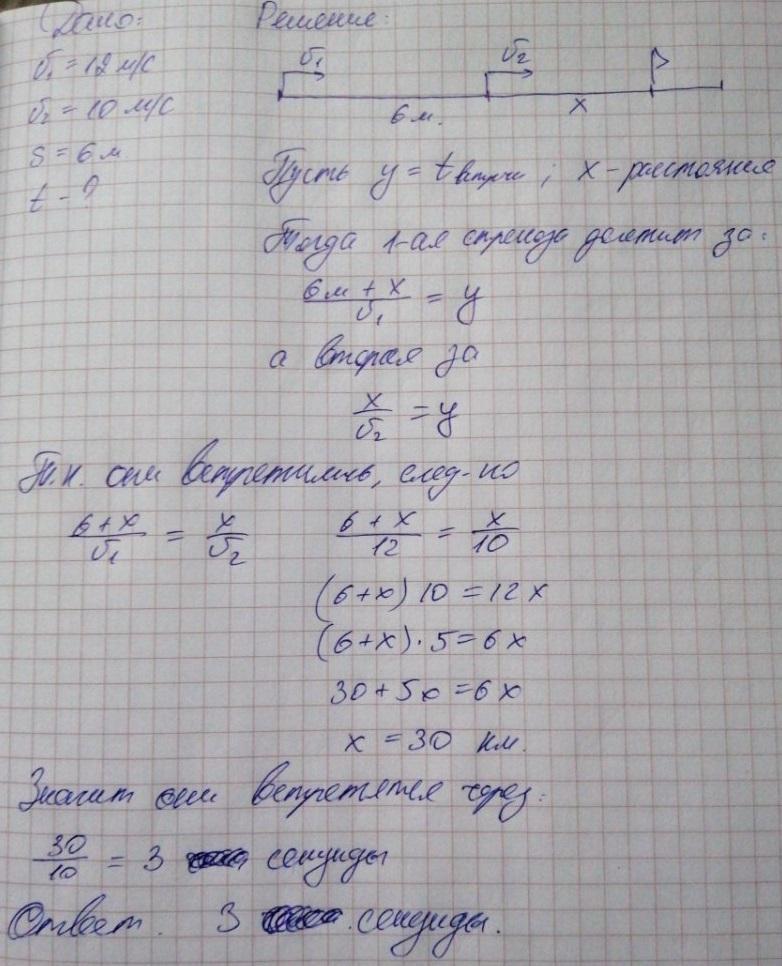 Дано: Решение:
υ₁ = 12 м/с
υ₂ = 10 м/с
S = 6 м
t - ?
υ₁ υ₂
6 м. x
Пусть y = t встречи ; x - расстояние
Тогда 1-ая стрекоза долетит за:
(6м + x)/υ₁ = y
а вторая за
x/υ₂ = y
Т.к. они встретились, след-но
(6+x)/υ₁ = x/υ₂ (6+x)/12 = x/10
(6+x) 10 = 12x
(6+x)·5 = 6x
30 + 5x = 6x
x = 30 км.
Значит они встретятся через:
30/10 = 3 секунды
Ответ. 3 секунды.